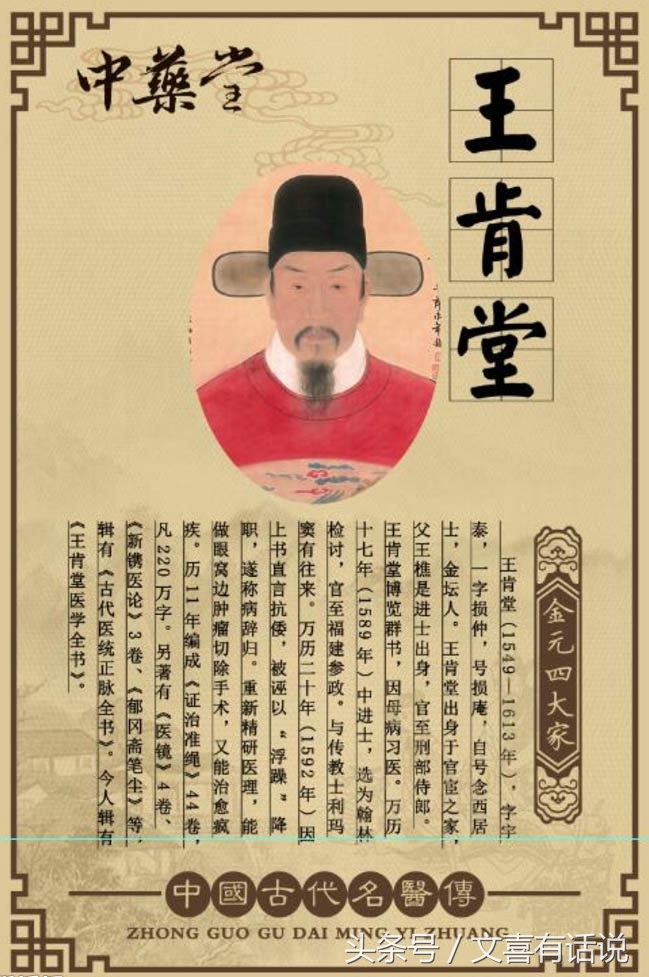 中藥堂
王肯堂
金元四大家
王肯堂（1549—1613年），字宇
泰，一字损仲，号损庵，自号念西居
士，金坛人。王肯堂出身于官宦之家，
父王樵是进士出身，官至刑部侍郎。
王肯堂博览群书，因母病习医。万历
十七年（1589年）中进士，选为翰林
检讨，官至福建参政。与传教士利玛
窦有往来。万历二十年（1592年）因
上书直言抗倭，被诬以“浮躁”降
职，遂称病辞归。重新精研医理，能
做眼窝边肿瘤切除手术，又能治愈疯
疾。历11年编成《证治准绳》44卷，
凡220万字。另著有《医镜》4卷、
《新镌医论》3卷、《郁冈斋笔尘》等，
辑有《古代医统正脉全书》。今人辑有
《王肯堂医学全书》。
中國古代名醫傳
ZHONG GUO GU DAI MING YI ZHUANG
头条号 / 文喜有话说